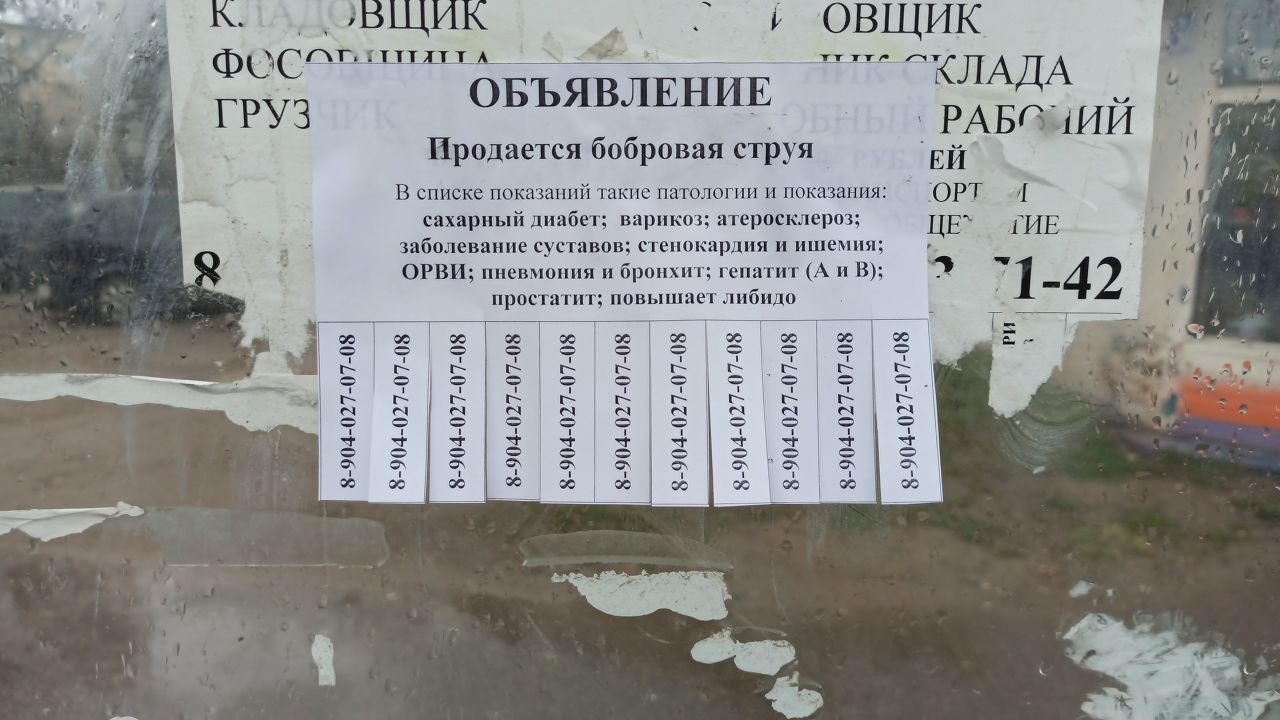 КЛАДОВЩИК
ОВЩИК
ФОСОВЩИЦА
НИК СКЛАДА
ГРУЗЧИК
ОБНЫЙ РАБОЧИЙ
РУБЛЕЙ
ОБЪЯВЛЕНИЕ
Продается бобровая струя
В списке показаний такие патологии и показания:
сахарный диабет; варикоз; атеросклероз;
заболевание суставов; стенокардия и ишемия;
ОРВИ; пневмония и бронхит; гепатит (А и В);
простатит; повышает либидо
8
71-42
РИ
8-904-027-07-08
8-904-027-07-08
8-904-027-07-08
8-904-027-07-08
8-904-027-07-08
8-904-027-07-08
8-904-027-07-08
8-904-027-07-08
8-904-027-07-08
8-904-027-07-08
8-904-027-07-08